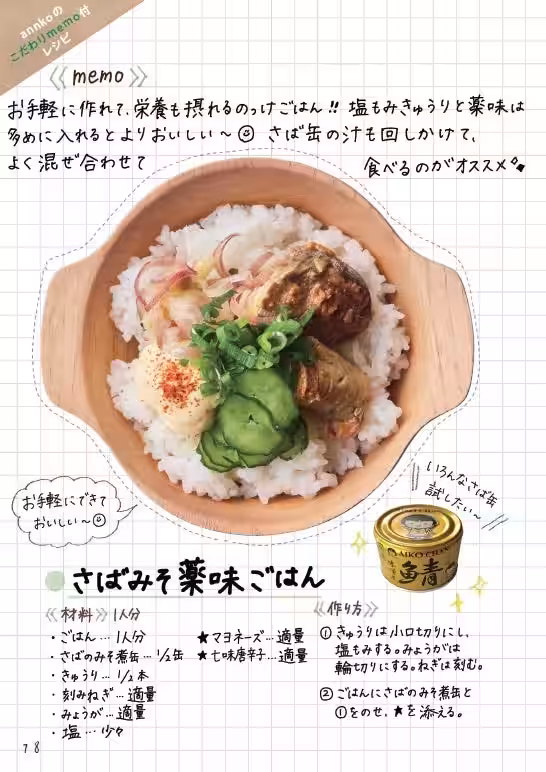 annkoの
こだわりmemo付
レシピ
《memo》
お手軽に作れて、栄養も摂れるのっけごはん!! 塩もみきゅうりと薬味は
多めに入れるとよりおいしい〜☺ さば缶の汁も回しかけて、
よく混ぜ合わせて
食べるのがオススメ
お手軽にできて
おいしい〜☺
いろんなさば缶
試したい〜
AIKO CHAN
鯖
さばみそ薬味ごはん
《材料》1人分
・ごはん…1人分
・さばのみそ煮缶…1/2缶
・きゅうり…1/2本
・刻みねぎ…適量
・みょうが…適量
・塩…少々
★マヨネーズ…適量
★七味唐辛子…適量
《作り方》
①きゅうりは小口切りにし、
塩もみする。みょうがは
輪切りにする。ねぎは刻む。
②ごはんにさばのみそ煮缶と
①をのせ、★を添える。
78